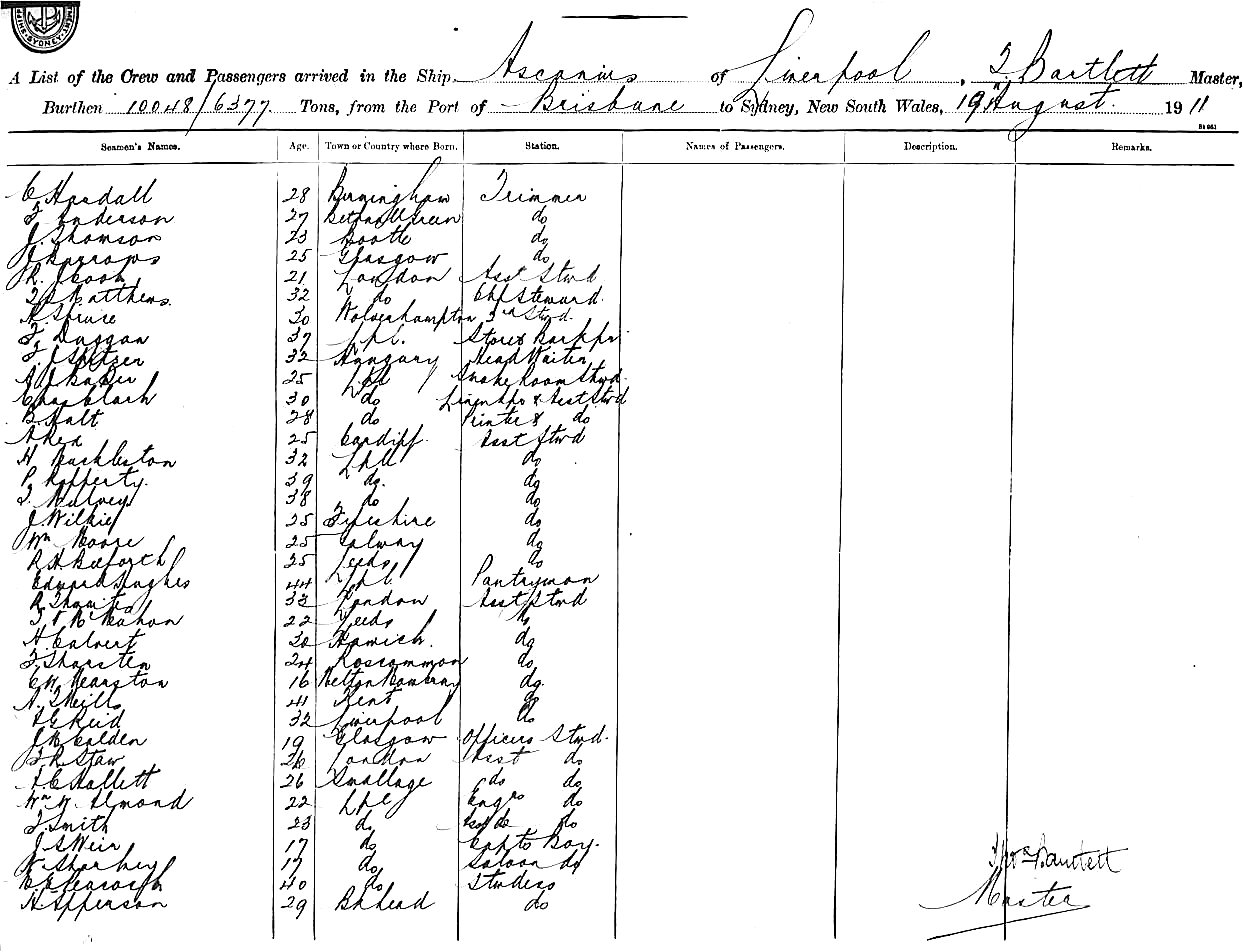 A List of the Crew and Passengers arrived in the Ship, Ascanius of Liverpool, T. Bartlett Master,
Burthen 10048/6377 Tons, from the Port of Brisbane to Sydney, New South Wales, 19th August 1911
Seamen's Names. Age. Town or Country where Born. Station. Names of Passengers. Description. Remarks.
C Handall 28 Birmingham Trimmer
T Anderson 27 Bethnal Green do
J. Thomson 23 Bootle do
J Barrows 25 Glasgow do
R. J Cook 21 London Asst Stwd
Matthews 32 do Chf Steward.
A Spruce 30 Wolverhampton 3rd Stwd.
T. Duggan 37 Lpl. Store & Barkpr
T. J Spitzer 32 Hungary Head Waiter
A J Baker 25 Lpl Smoke Room Stwd.
Chas Clark 30 do Linenkpr & Asst Stwd
B. Halt 28 do Printer & do
A Rex 25 Cardiff. Asst Stwd
H Huckleston 32 Lpl do
P. Rafferty. 39 do. do
T. Mulvey 38 do do
J. Wilkie 25 Fifeshire do
Wm Moore 25 Galway do
R. H. Boxforth 25 Leeds do
Edward Hughes 44 Lpl. Pantryman
R. Thwaites 33 London Asst Stwd
McMahon 22 Leeds do
H Calvert 30 Harwich. do
T. Thursten 24 Roscommon do
C. W. Mearston 16 Melton Mowbray do.
A. T Mills 41 Kent do
Reid 32 Liverpool do
J. B. Calden 19 Glasgow Officers Stwd.
T. R. Staw 26 London Asst do
Hallett 26 Smallage do do
Wm H. Almond 22 Lpl Engrs do
T. Smith 23 do do
J. S Weir 17 do Capts Boy.
Sharkey 17 do Saloon do
40 do Stwdess
A. Epperson 29 Bkhead do
Thos Bartlett
Master